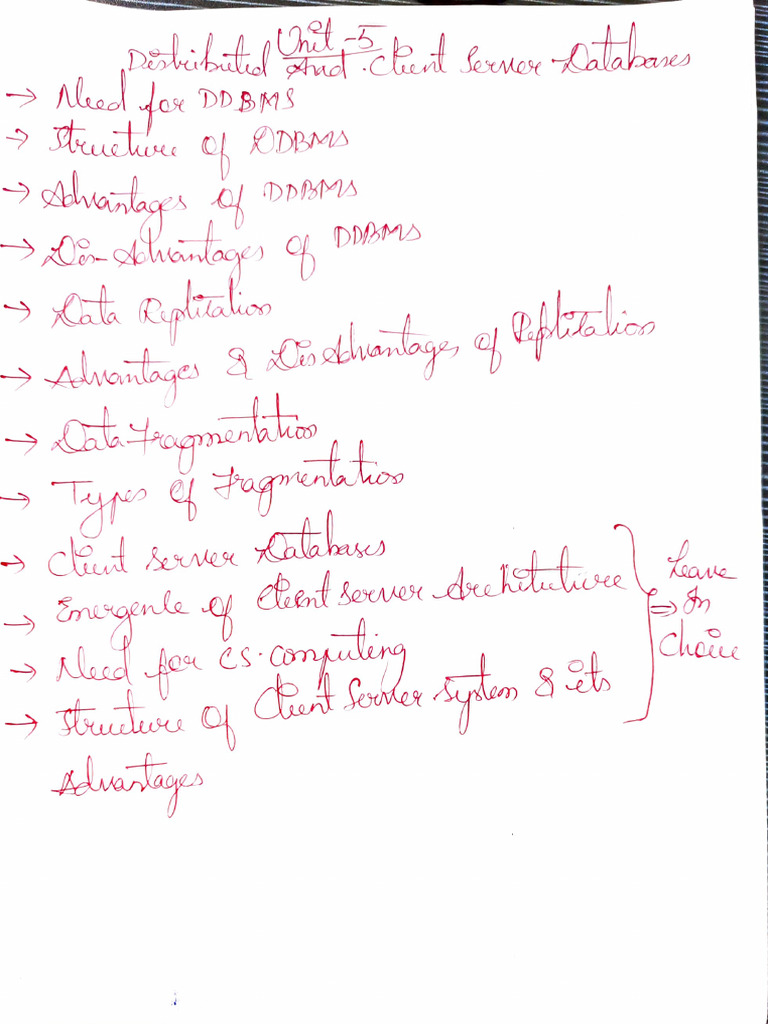 Unit-5
Distributed And Client Server Databases
→ Need for DDBMS
→ Structure of DDBMS
→ Advantages of DDBMS
→ Dis-Advantages of DDBMS
→ Data Replication
→ Advantages & DisAdvantages of Replication
→ Data Fragmentation
→ Types of Fragmentation
→ Client Server Databases
→ Emergence of Client Server Architecture
→ Need for CS. Computing
→ Structure of Client Server System & its
Advantages
⇒ Leave
In
Choice